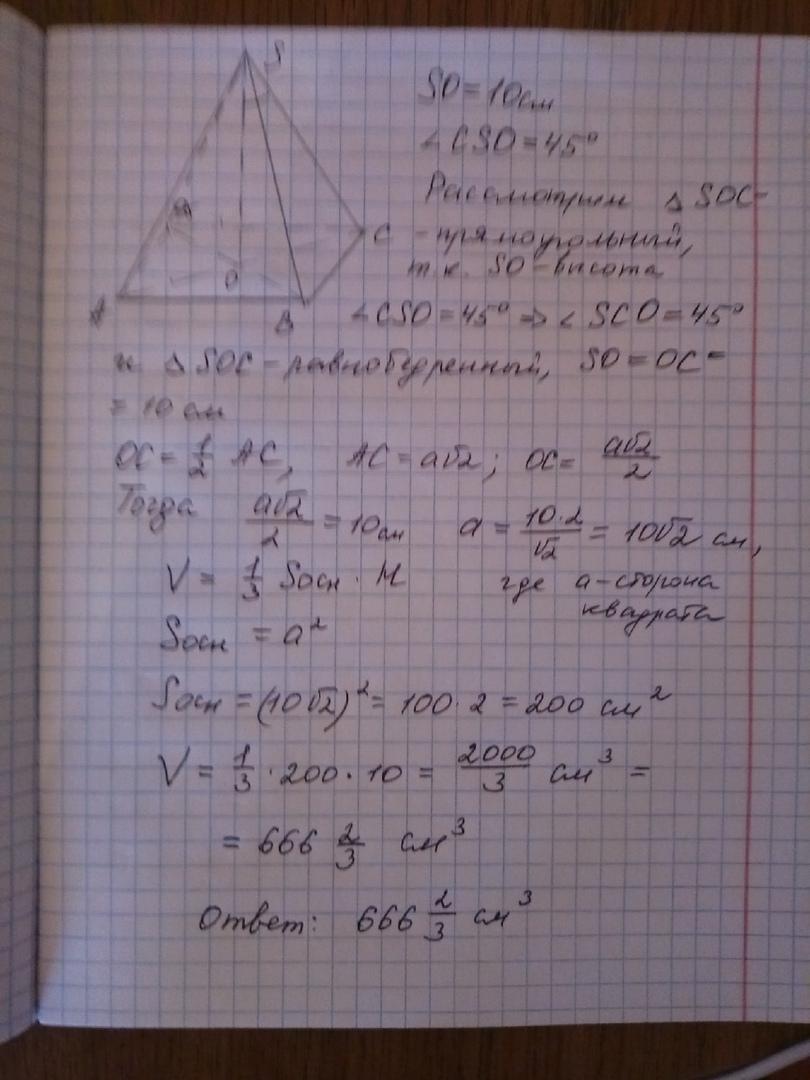 S
SO = 10 см
∠CSO = 45°
Рассмотрим △ SOC -
C
- прямоугольный,
т.к. SO - высота
O
A
B
∠CSO = 45° ⇒ ∠SCO = 45°
и △ SOC - равнобедренный, SO = OC =
= 10 см
OC = 1/2 AC, AC = a√2; OC = a√2/2
Тогда a√2/2 = 10 см a = 10·2/√2 = 10√2 см,
V = 1/3 Sосн · H где a - сторона
квадрата
Sосн = a²
Sосн = (10√2)² = 100·2 = 200 см²
V = 1/3 · 200 · 10 = 2000/3 см³ =
= 666 2/3 см³
Ответ: 666 2/3 см³